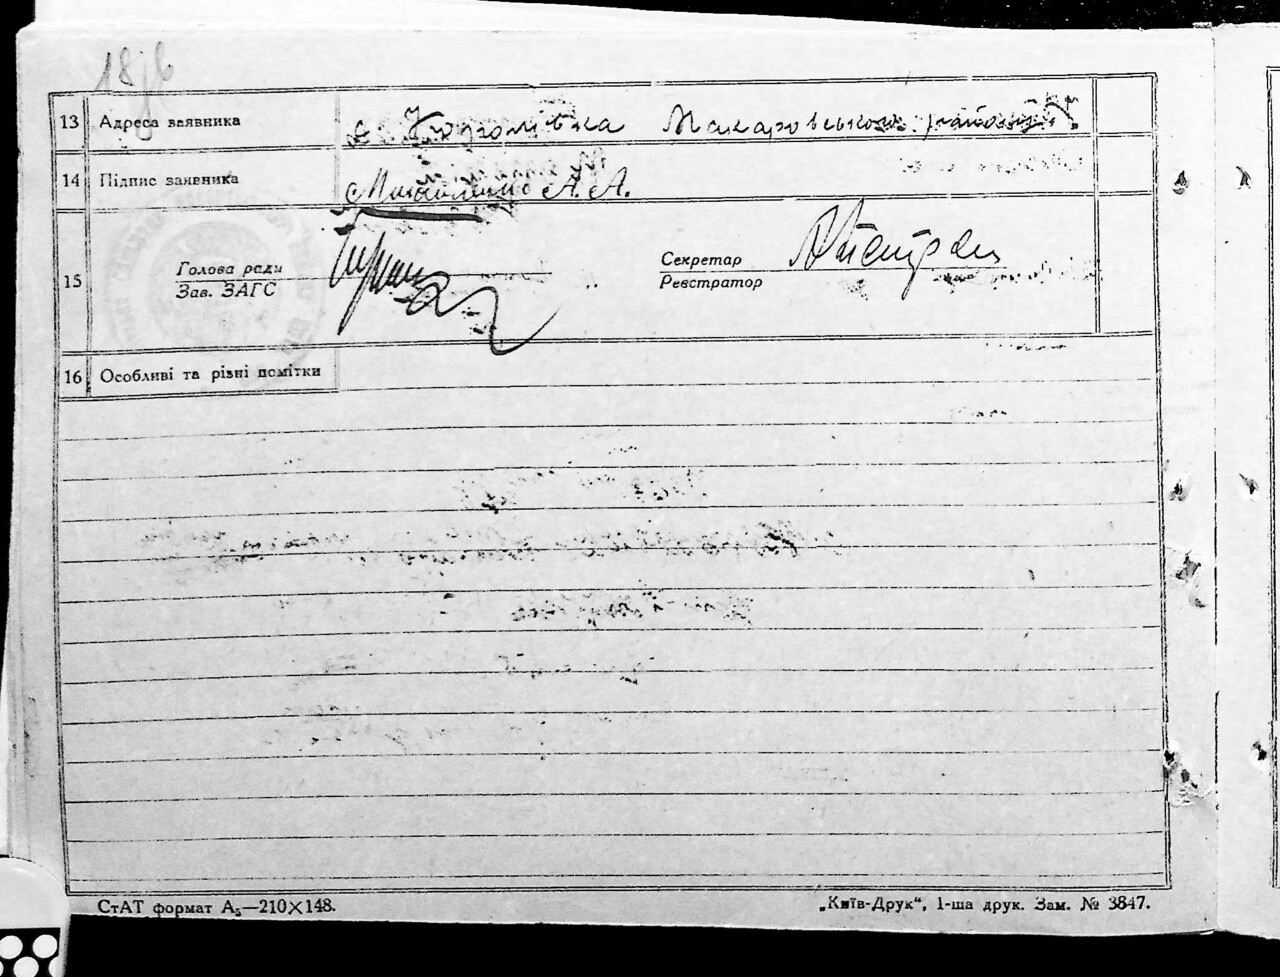 13 Адреса заявника с. Королівка Макаровського району
14 Підпис заявника А. А.
15 Голова ради Секретар
Зав. ЗАГС Реєстратор
16 Особливі та різні помітки
СтАТ формат А₅—210×148. „Київ-Друк“, 1-ша друк. Зам. № 3847.